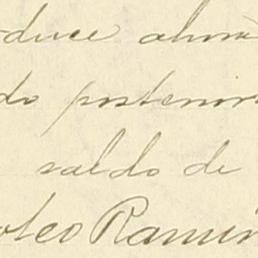 duce
do posterior
saldo de
oteo Ramír